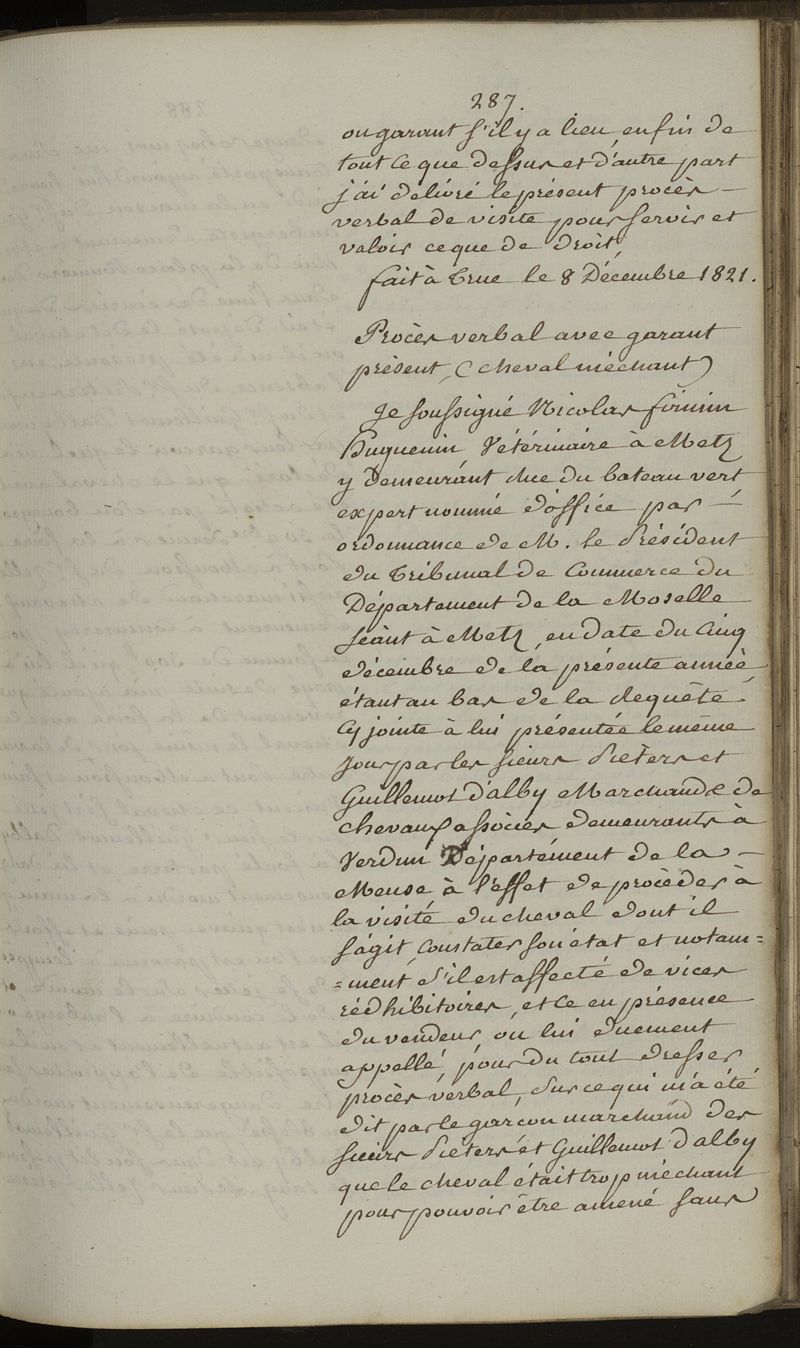 287.
ou garant s'il y a lieu enfin de
tout ce que dessus et d'autre part
j'ai délivré le présent procès —
verbal de visite pour servir et
valoir ce que de droit,
fait à le 8 Décembre 1821.
Procès verbal avec garant
présent, (cheval méchant)
Je soussigné Nicolas firmin
huguenin Vétérinaire à Metz
y demeurant Rue du bateau vert
expert nommé d'office par —
ordonnance de M. le Président
du Tribunal de Commerce du
Département de la Moselle
séant à Metz, en date du Cinq
décembre de la présente année
étant au bas de la Requête
Cy jointe à lui présentée le même
Jour par les sieurs Pieters et
Guillemot d'alby Marchands de
chevaux associés demeurants à
Verdun Département de la —
Meuse à l'effet de procéder à
la visite du cheval dont il
s'agit, constater son état et notam=
=ment s'il est affecté de vices
rédhibitoires, et ce en présence
du vendeur, ou lui duement
appellé, pour du tout dresser
procès verbal, Sur ce qui m'a été
dit par le garçon marchand des
sieurs Pieters et Guillemot d'alby
que le cheval était trop méchant
pour pouvoir être amené sans